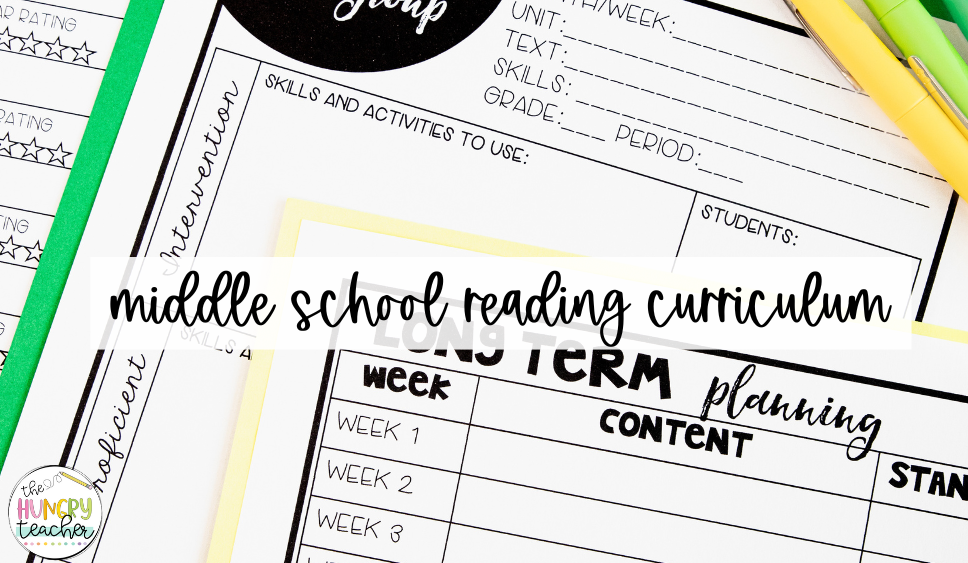 group
TH/WEEK:
UNIT:
TEXT:
SKILLS:
GRADE: PERIOD:
AR RATING
RATING
TING
Intervention
SKILLS AND ACTIVITIES TO USE:
STUDENTS:
middle school reading curriculum
SKILLS A
roficient
LONG TERM planning
week CONTENT STAN
WEEK 1
WEEK 2
WEEK 3
the
HUNGRY
teacher